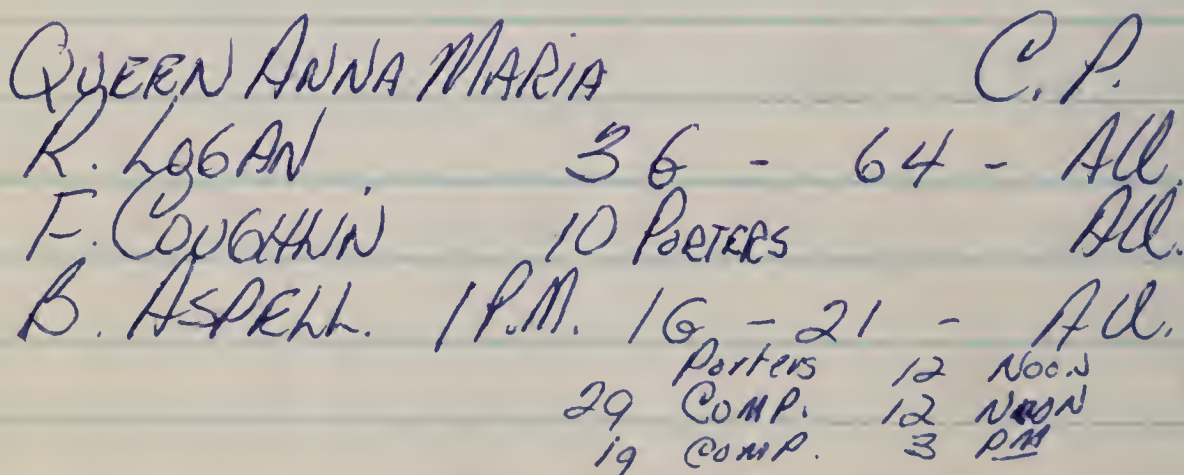 QUEEN ANNA MARIA C.P.
R. LOGAN 3G - 64 - All.
F. COUGHLIN 10 PORTERS All.
B. ASPELL. 1 P.M. 1G - 21 - All.
Porters 12 NOON
29 COMP. 12 NOON
19 COMP. 3 PM